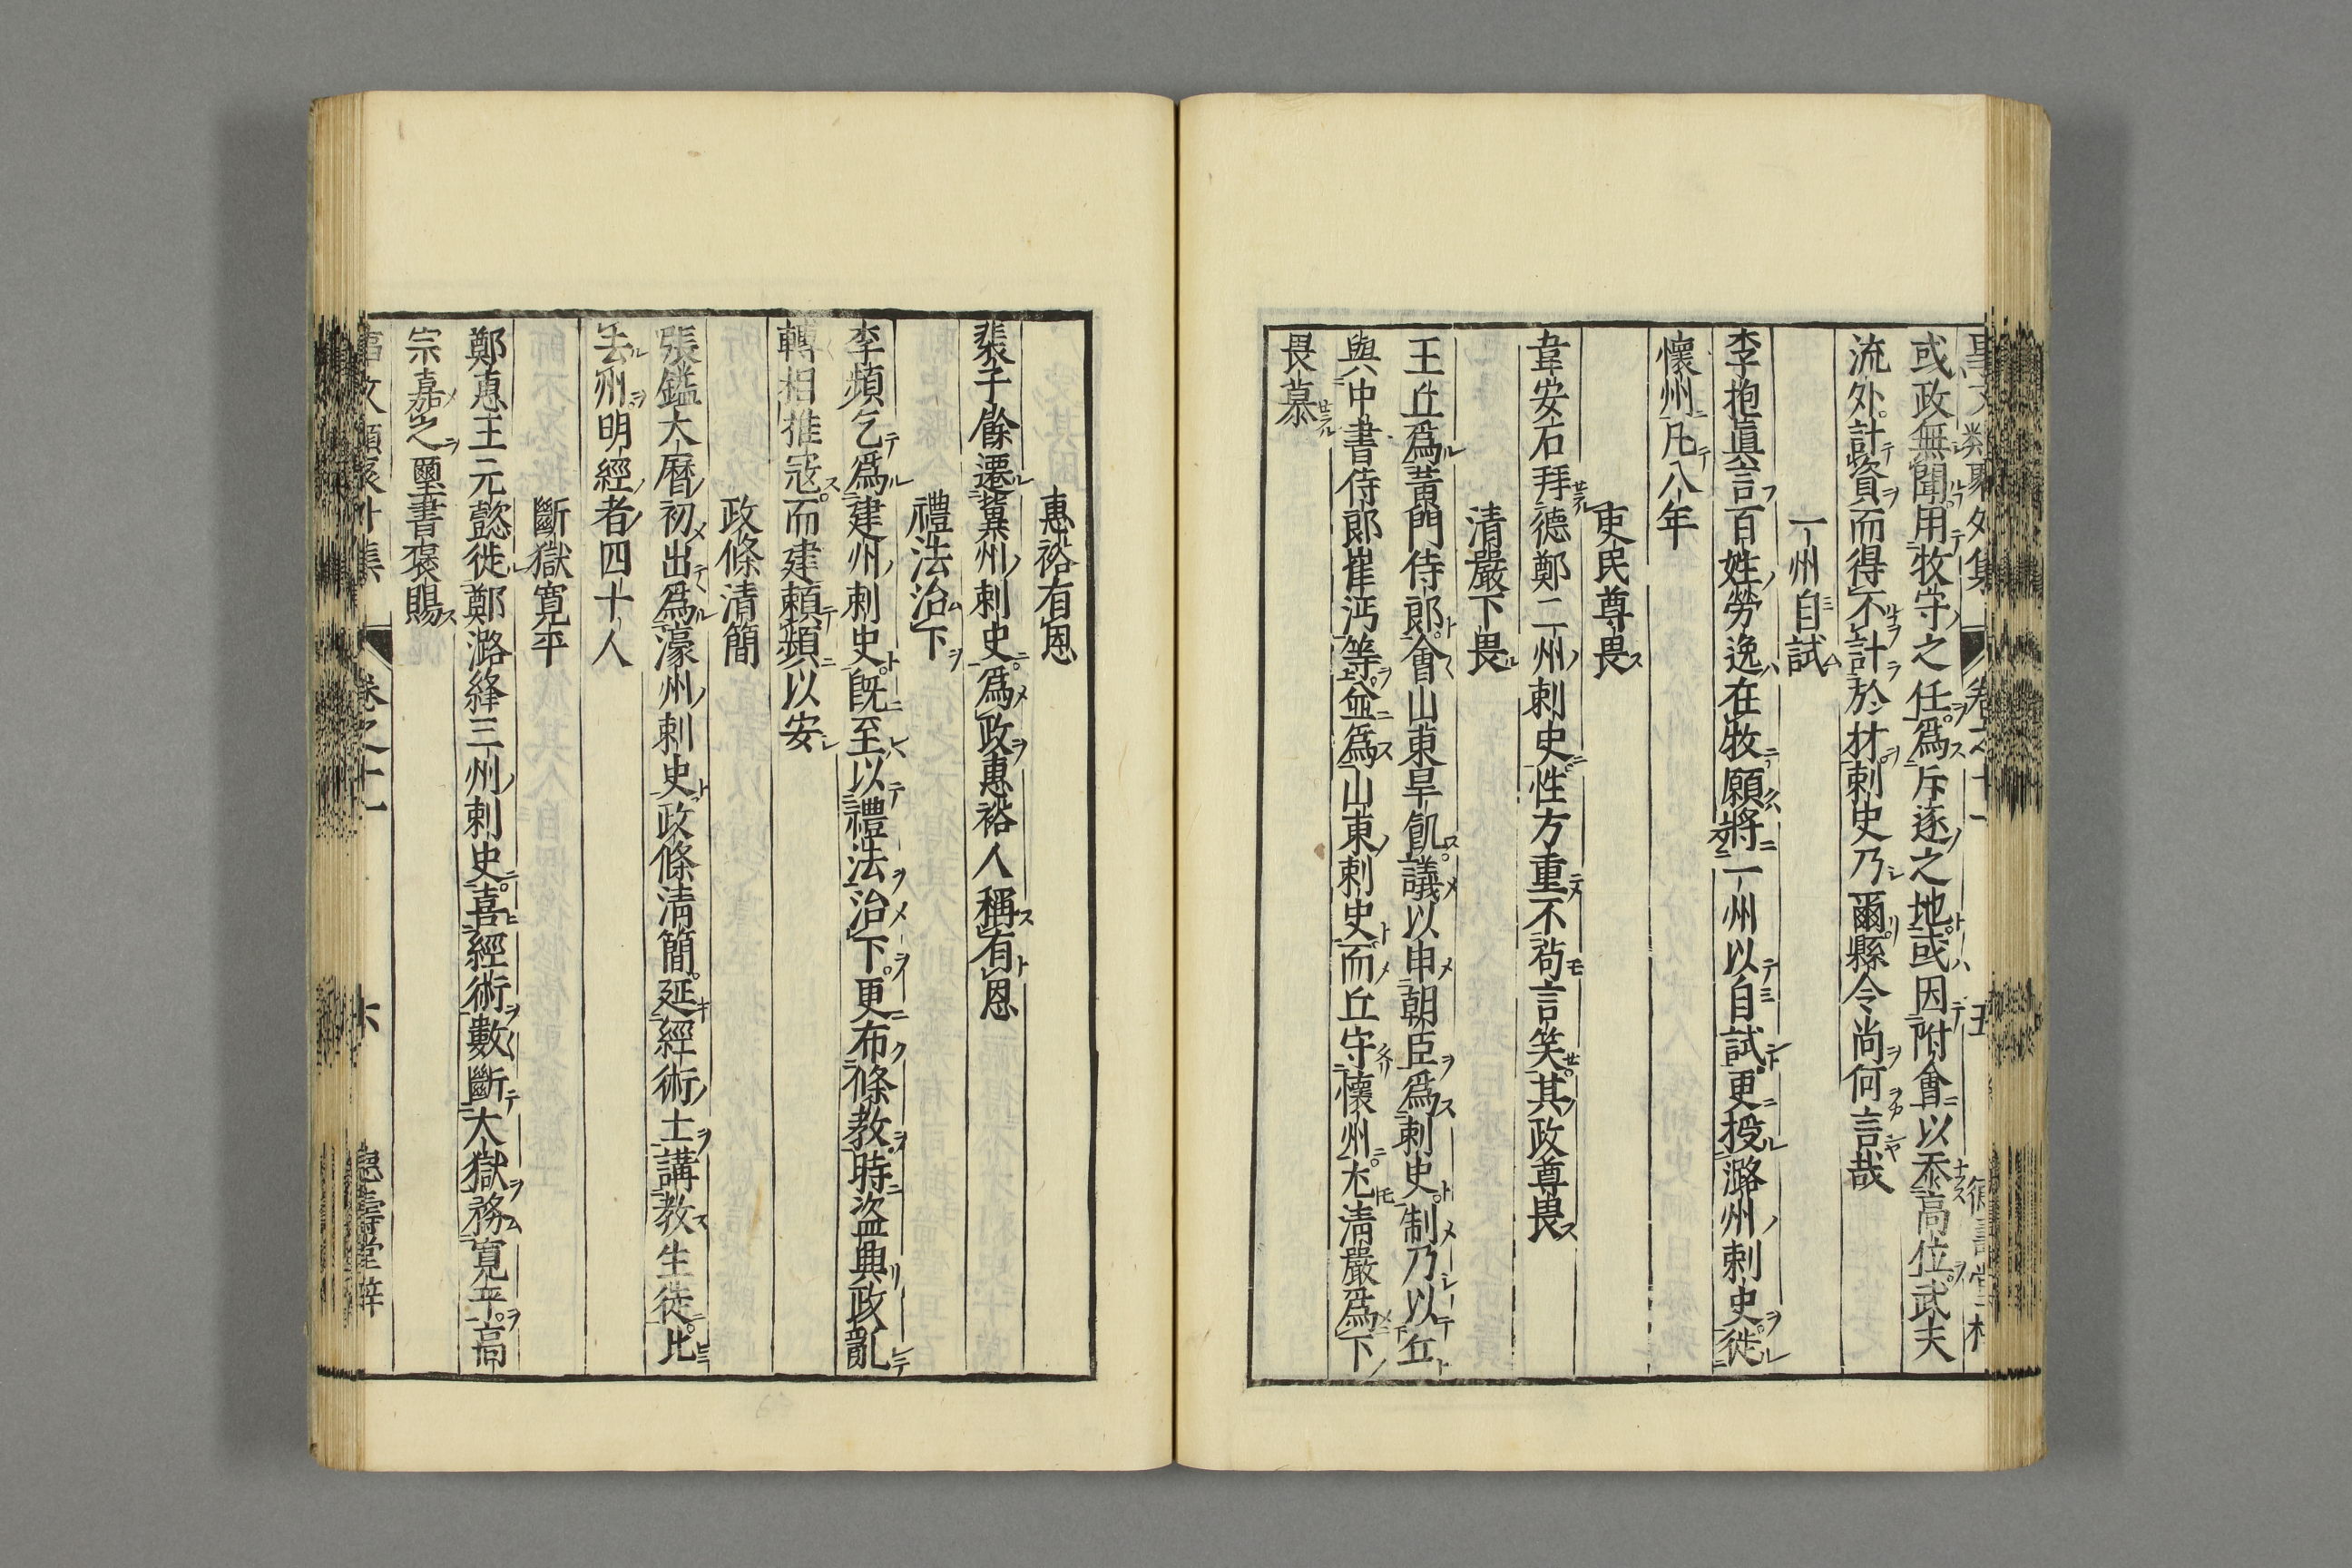 事文類聚外集 卷之十一 五 德壽堂梓
或政無聞用牧守之任爲斥逐之地或因附會以忝高位武夫
流外計資而得不計於材刺史乃爾縣令尚何言哉
一州自試
李抱眞言百姓勞逸在牧願將一州以自試更授潞州刺史徙
懷州凡八年
吏民尊畏
韋安石拜德鄭二州刺史性方重不苟言笑其政尊畏
清嚴下畏
王丘爲黃門侍郎會山東旱飢議以申朝臣爲刺史制乃以丘
與中書侍郎崔沔等竝爲山東刺史而丘守懷州尤清嚴爲下
畏慕
惠裕有恩
裴子餘遷冀州刺史爲政惠裕人稱有恩
禮法治下
李頻乞爲建州刺史既至以禮法治下更布條敎時盜興政亂
轉相推寇而建頼頻以安
政條清簡
張鎰大曆初出爲濠州刺史政條清簡延經術士講敎生徒比
去州明經者四十人
斷獄寬平
鄭惠王元懿徙鄭潞絳三州刺史喜經術數斷大獄務寬平高
宗嘉之璽書褒賜
事文類聚外集 卷之十一 六 德壽堂梓